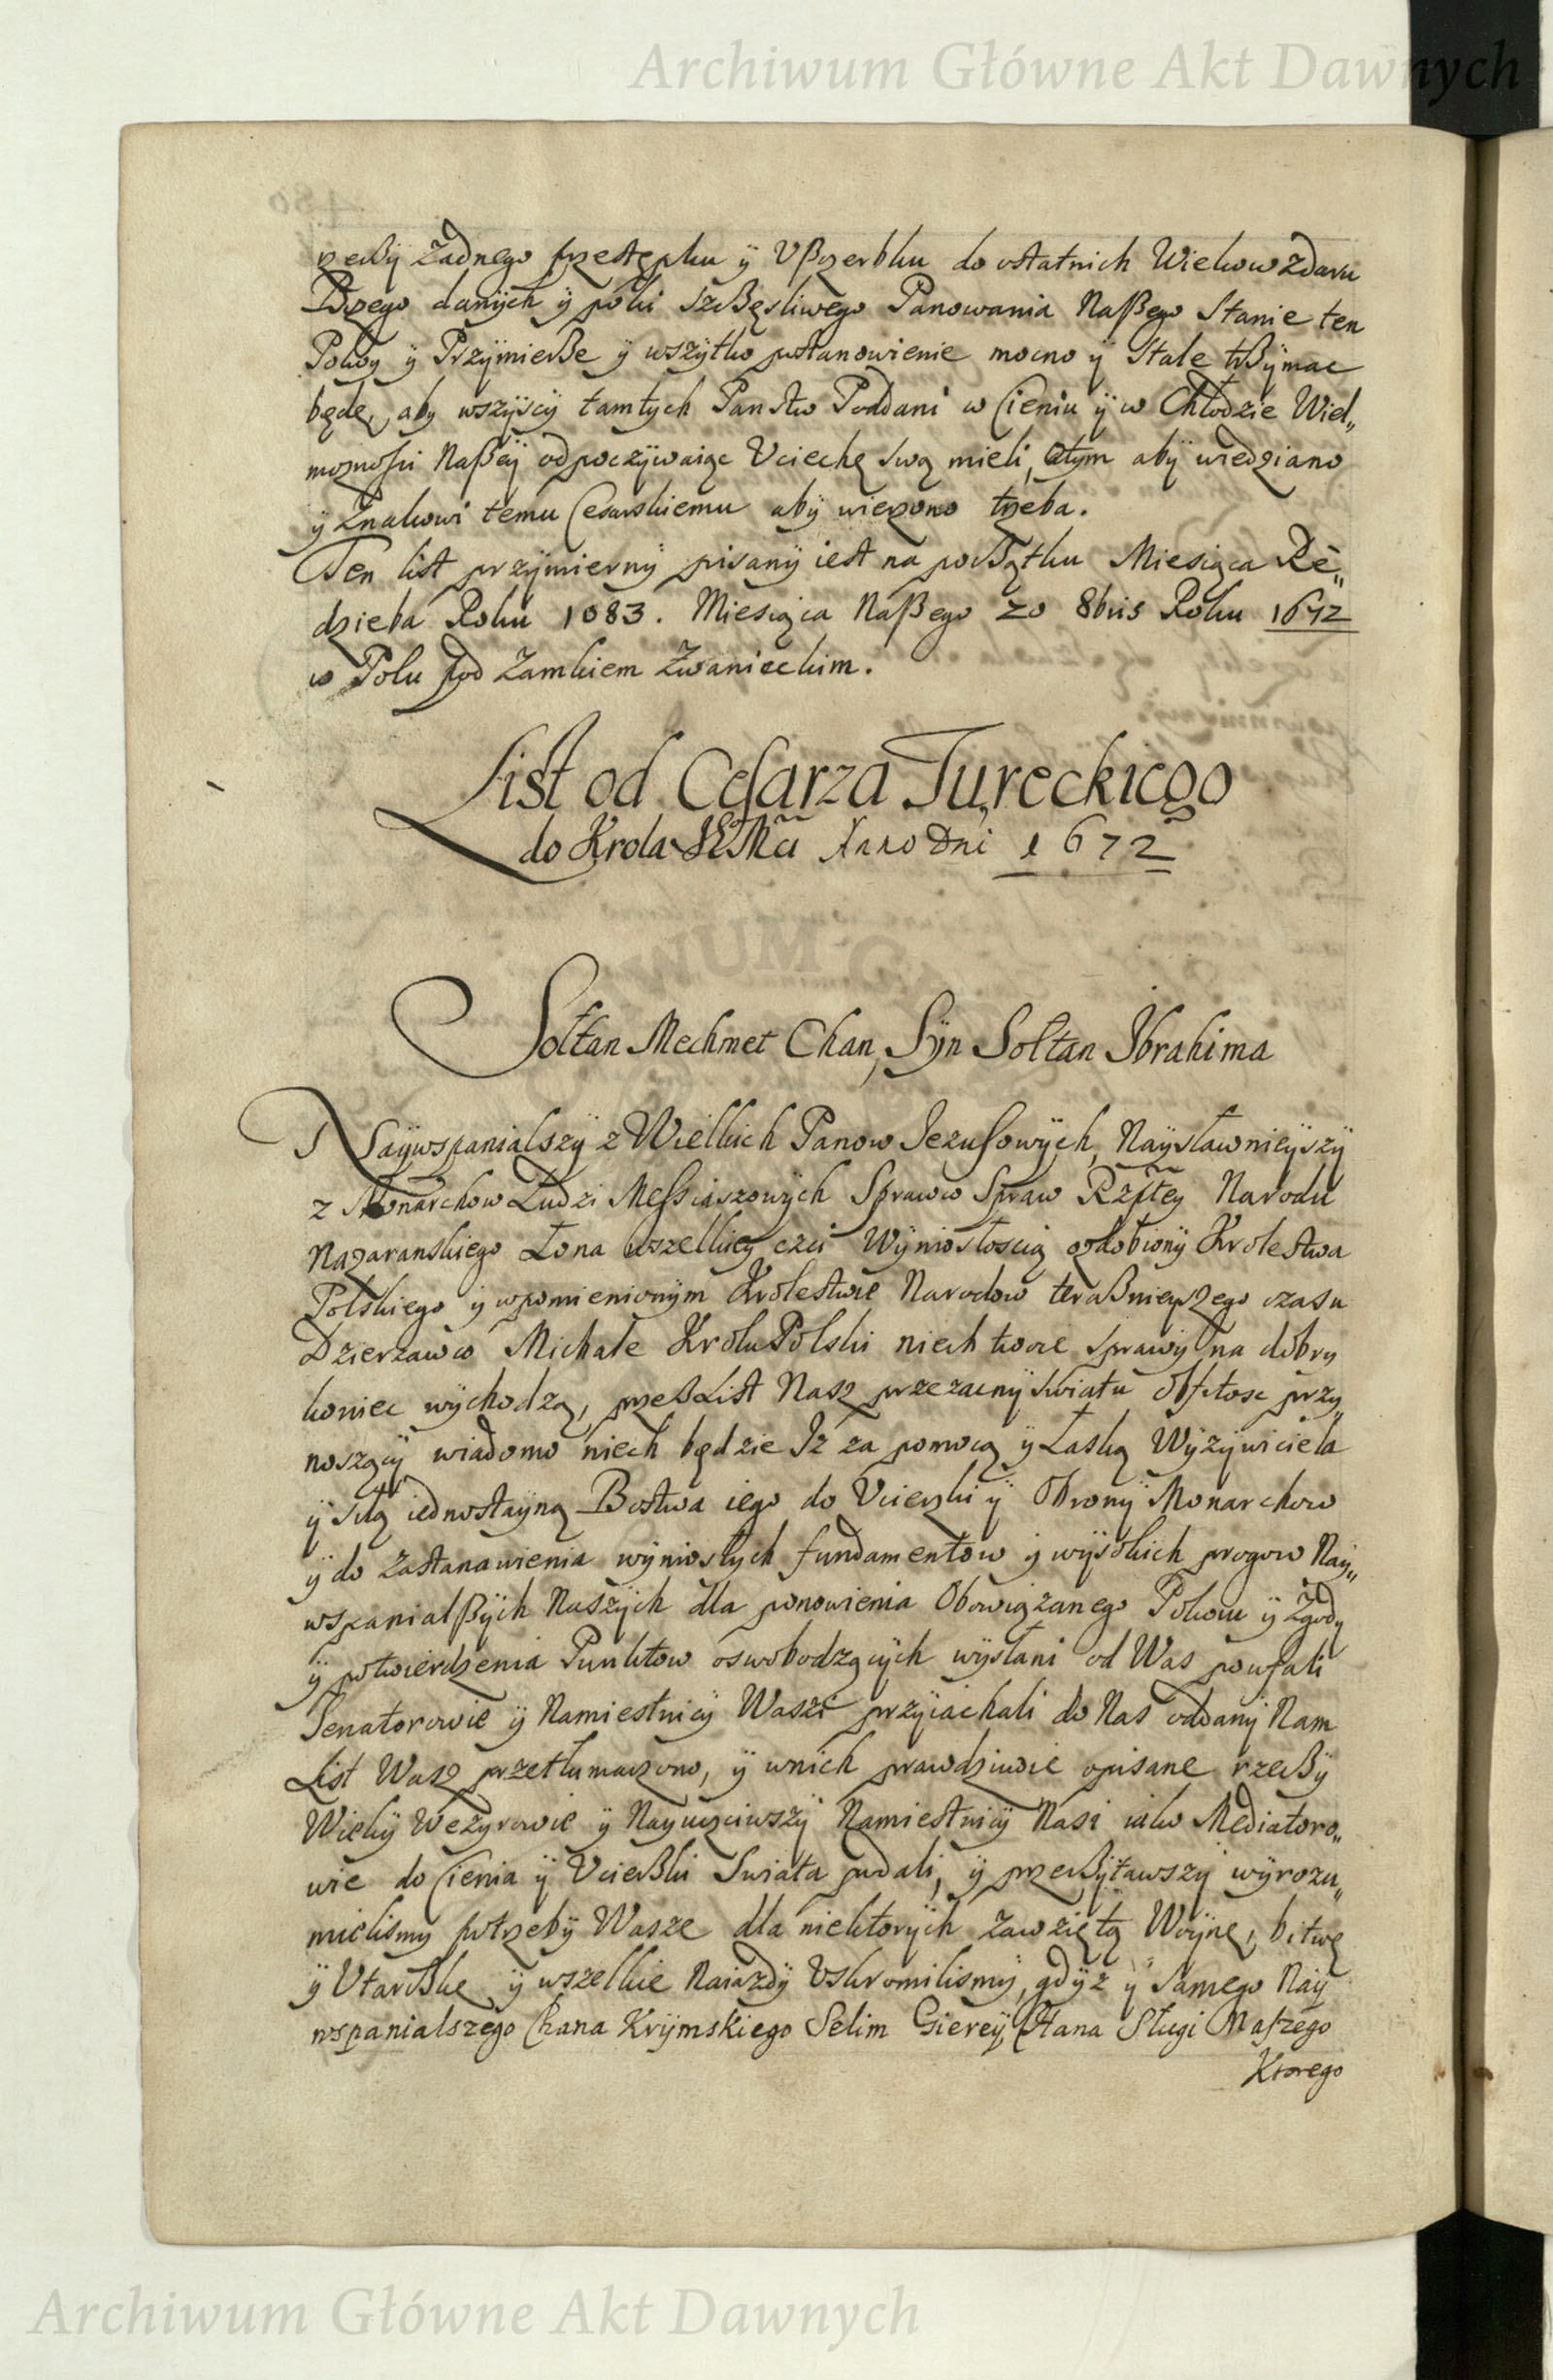 Archiwum Główne Akt Dawnych
rzeczÿ żadnego przestępku ÿ Vßczerbku do ostatnich Wiekow zdaru
Bożego danÿch ÿ poki szczęsliwego Panowania Naßego Stanie ten
Pokoy ÿ Przÿmierze ÿ wszÿtko postanowienie mocno ÿ Stale trzÿmac
będę, aby wszÿscÿ tamtych Panstw Poddani w Cieniu ÿ w Chłodzie Wiel„
moznosci Naßeÿ odpoczÿwaiąc Uciechę swą mieli, otym abÿ wiedziano
ÿ Znakowi temu Cesarskiemu abÿ wierzono trzeba.
Ten list przÿmiernÿ pisanÿ iest na początku Miesiąca Re„
dzieba Roku 1083. Miesiąca Naßego 20 8bris Roku 1672
w Polu pod Zamkiem Zwanieckim.
List od Cesarza Tureckiego
do Krola JKMci Anno Dni 1672
Sołtan Mechmet Chan, Sÿn Sołtan Ibrahima
Naÿwspanialszÿ z Wielkich Panow Jezusowÿch, Naÿsławnieÿszÿ
z Monarchow Ludzi Messiaszowych Sprawco Spraw Rzptey Narodu
Nazaranskiego Łona wszelkieÿ czci Wÿniosłoscią ozdobionÿ Krolestwa
Polskiego ÿ wpomienionÿm Krolestwie Narodow teraznieyszego czasu
Dzierzawco Michale Krolu Polski niech twoie sprawÿ na dobry
koniec wÿchodzą, przez List Nasz przezacnÿ swiatu Obfitosc przy„
noszącÿ wiadomo niech będzie Iz za pomocą ÿ Łaską Wÿzÿwiciela
ÿ siłą iednostaÿną Bostwa iego do Ucieczki ÿ Obronÿ Monarchow
ÿ do zastanawienia wÿniosłych fundamentow ÿ wÿsokich progow Naÿ„
wspanialßÿch Naszÿch dla ponowienia Obowiązanego Pokoiu ÿ Zgodÿ
ÿ potwierdzenia Punktow oswobodzącÿch wÿsłani od Was poufali
Senatorowie ÿ Namiestnicÿ Waszi przÿiachali do Nas oddanÿ Nam
List Wasz przetłumaczono, ÿ wnich prawdziwie opisane rzeczÿ
Wielkÿ Wezyrowie ÿ Nayuczciwszÿ Namiestnicÿ Nasi iako Mediatoro„
wie do Cienia ÿ Ucieczki Swiata podali, ÿ przeczÿtawszÿ wÿrozu„
mielismy potrzebÿ Wasze dla niektorÿch zawziętą Woynę, bitwę
ÿ Utarczkę ÿ wszelkie Naiazdÿ Uskromilismÿ, gdÿz ÿ samego Naÿ
wspanialszego Chana Krÿmskiego Selim Giereÿ Chana Sługi Naszego
Ktorego
Archiwum Główne Akt Dawnych